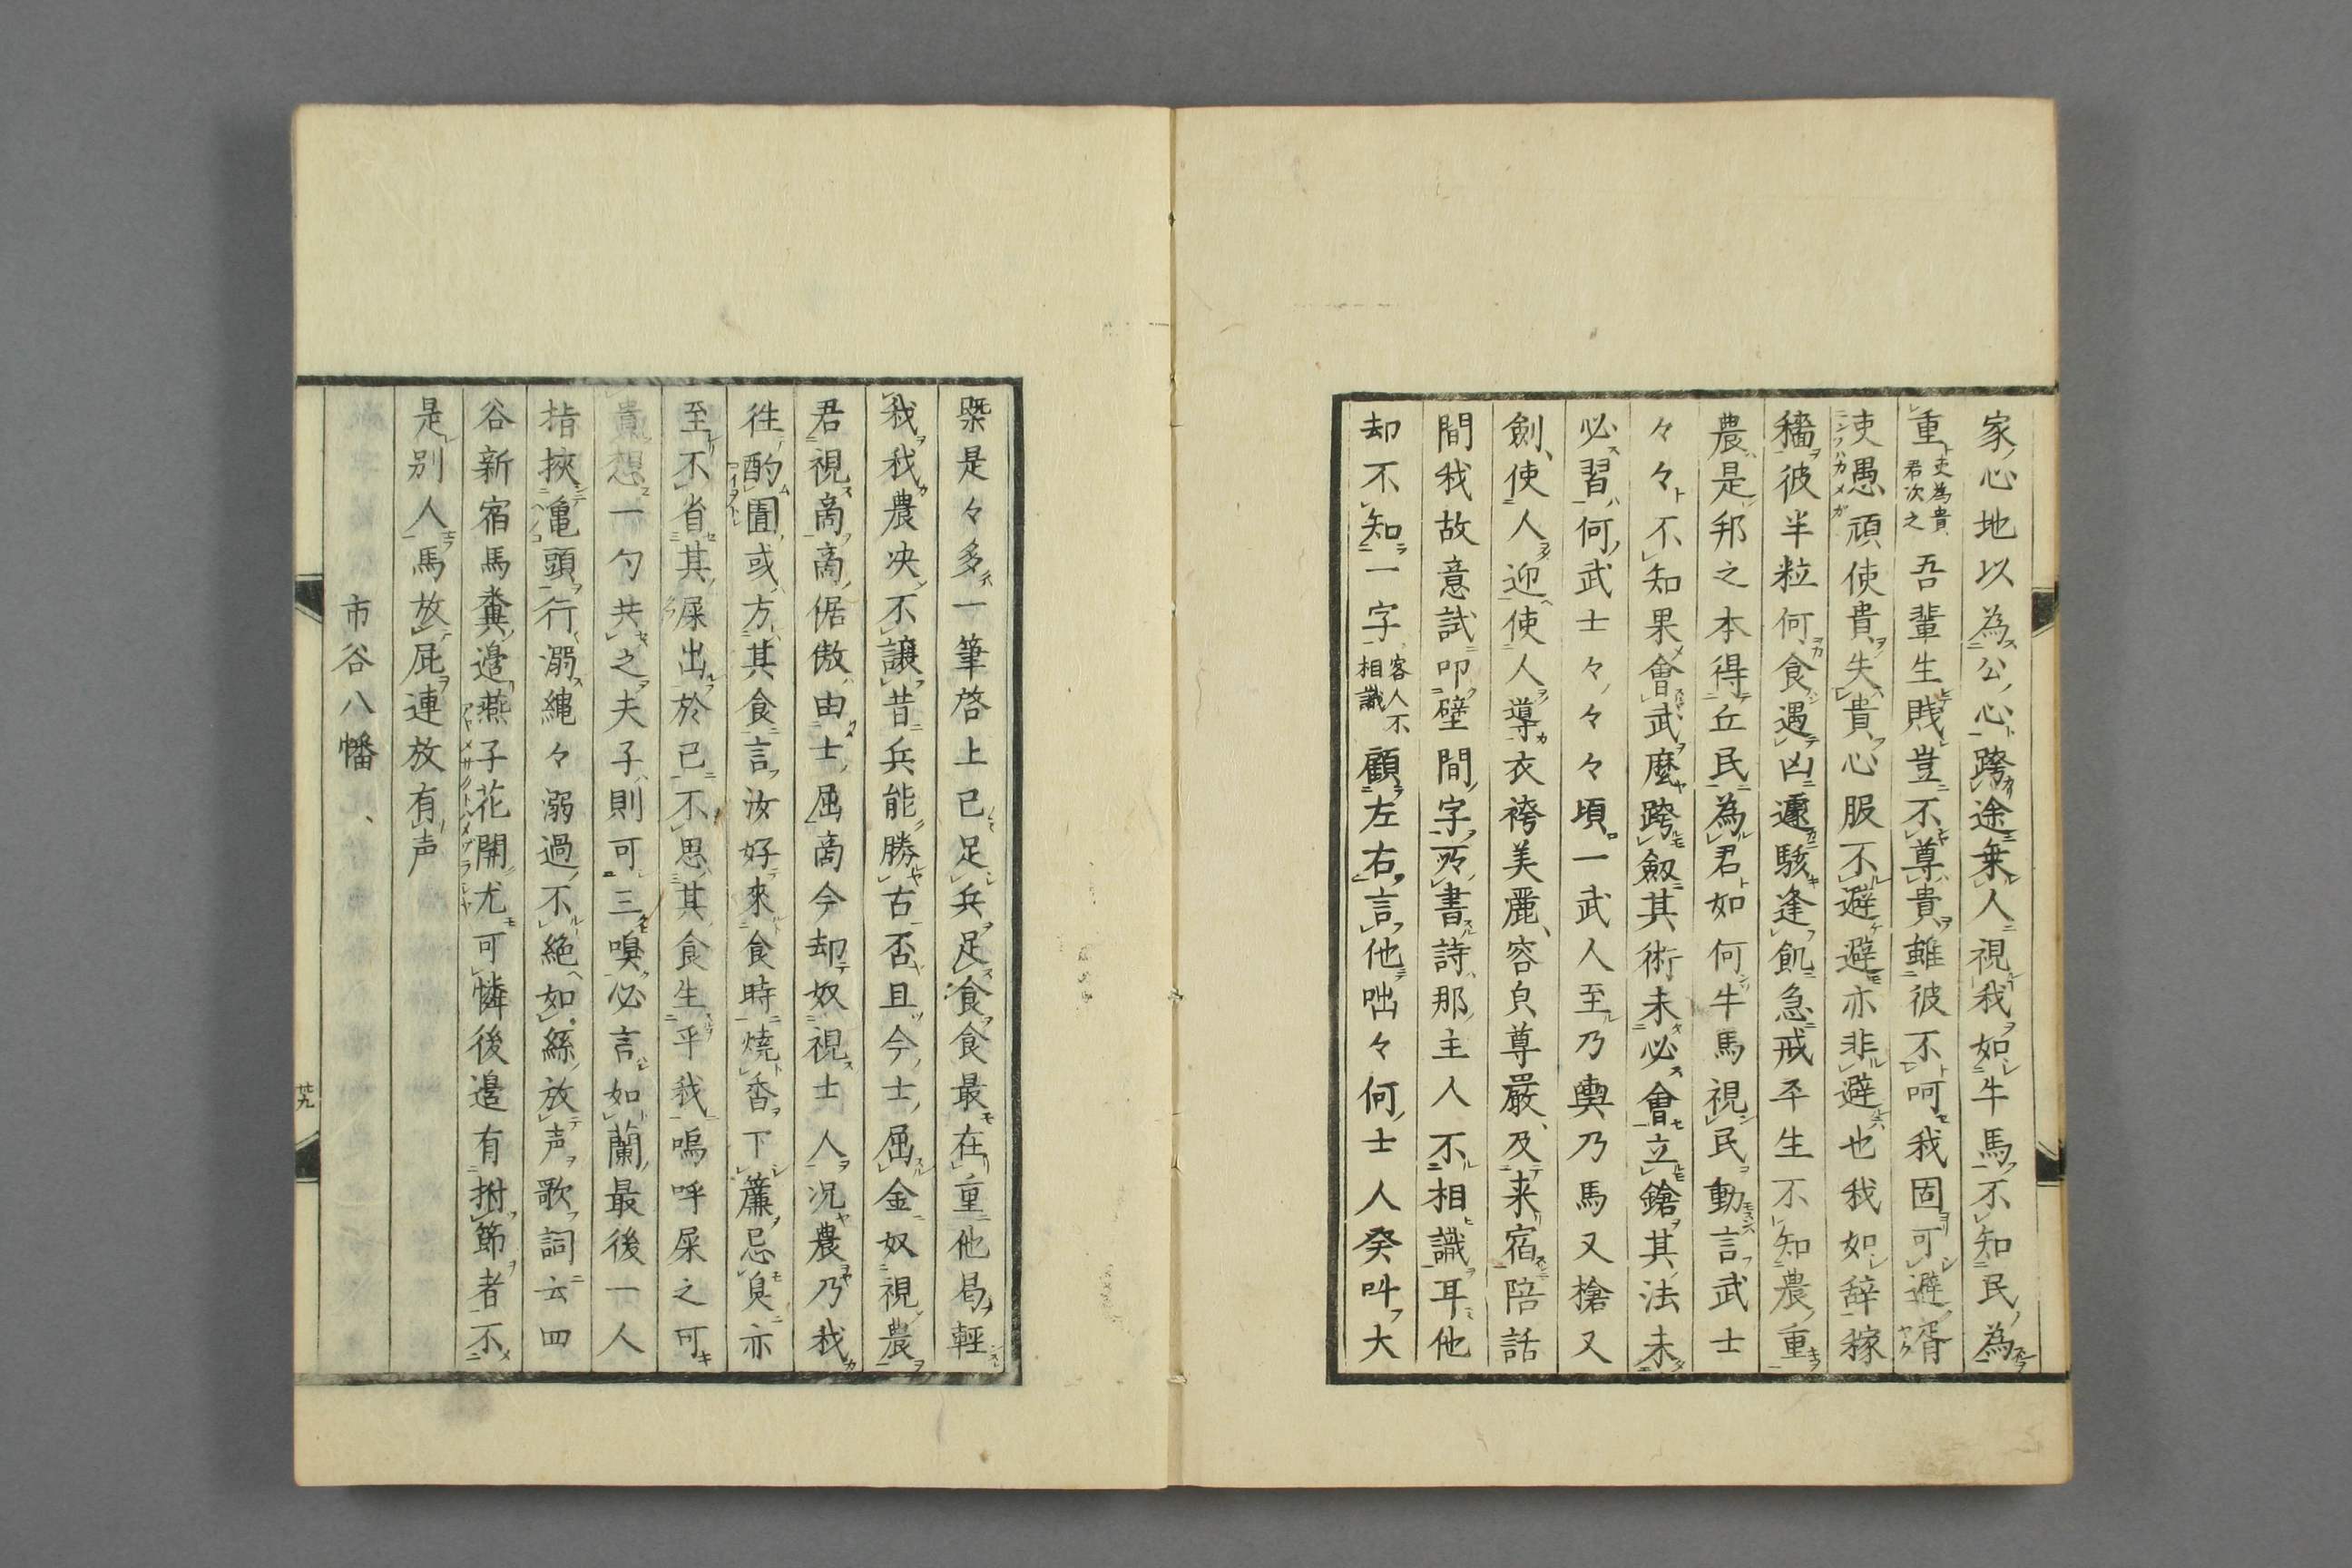 家心地以為公心跨途乗人視我如牛馬不知民為
重吏為貴君次之吾輩生賎豈不尊貴雖彼不呵我固可避壻
吏愚頑使貴失貴心服不避避亦非避也我如辞稼
穡彼半粒何食遇凶遽駭逢飢急戒平生不知農重
農是邦之本得丘民為君如何牛馬視民動言武士
々々不知果會武麼跨劔其術未必會立鎗其法未
必習何武士々々々頃一武人至乃輿乃馬又槍又
劍使人迎使人導衣袴美麗容皃尊嚴及来宿陪話
間我故意試叩壁間字所書詩那主人不相識耳他
却不知一字客人不相識顧左右言他咄々何士人癸叫大
槩是々多一筆啓上已足兵足食食最在重他曷輕
我我農决不讓昔兵能勝古否且今士屈金奴視農
君視商商倨傲由士屈商今却奴視士人况農乃我
徃酌圊或方其食言汝好來食時燒香下簾忌臭亦
至不省其屎出於已不思其食生乎我嗚呼屎之可
貴想一勺共之夫子則可三嗅必言如蘭最後一人
指挾亀頭行溺縄々溺過不絶如絲放声歌詞云四
谷新宿馬糞邉燕子花開尤可憐後邉有拊節者不
是别人馬放屁連放有声
市谷八幡
廿九